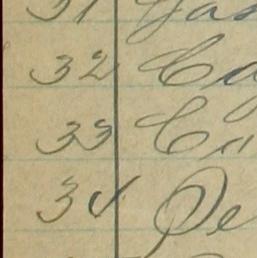 31 Gas
32 Ca
33 Ca
34 De